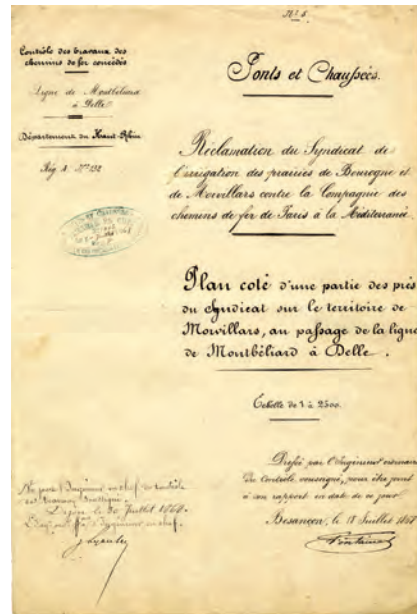 N° 5.
Contrôle des travaux des
chemins de fer concédés
Ligne de Montbéliard
à Delle
Département du Haut-Rhin
Rég. A. N° 232
Ponts et Chaussées.
Réclamation du Syndicat de
l'irrigation des prairies de Bourogne et
de Morvillars contre la Compagnie des
chemins de fer de Paris à la Méditerranée
Plan coté d'une partie des prés
du Syndicat sur le territoire de
Morvillars, au passage de la ligne
de Montbéliard à Delle.
Echelle de 1 à 2500.
Dressé par l'Ingénieur ordinaire
du Contrôle, soussigné, pour être joint
à son rapport en date de ce jour.
Besançon, le 18 Juillet 1868
Vu par l'Ingénieur en chef du Contrôle
des travaux soussigné.
Dijon le 30 Juillet 1868.
d'Ingénieur en chef.